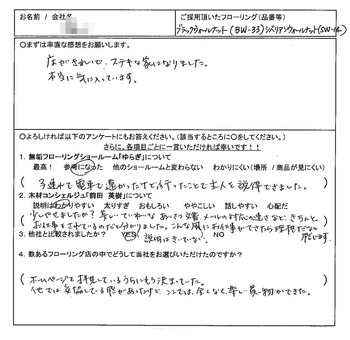 お名前 / 会社名
ご採用頂いたフローリング（品番等）
ブラックウォールナット（BW-33）シベリアンウォールナット(SW-
○まずは率直な感想をお願いします。
床がきれいで、ステキな家になりました。
本当に気に入っています。
○よろしければ以下のアンケートにもお答えください。（該当するところに○をしてください。）
さらに、各項目ごとに一言いただければ幸いです！
1. 無垢フローリングショールーム「ゆらぎ」について
最高！ 参考になった 他のショールームと変わらない わかりにくい（場所 / 商品が見にくい）
子連れで電車で遠かったけど行ったことで主人を説得できました。
2. 木材コンシェルジュ「前田 英樹」について
説明はわかりやすい 太りすぎ おもしろい ややこしい 話しやすい 心配だ
少しやせましたか？ 長い、ていねいなあいさつ文書、メールの対応の速さなど、きちんと
お仕事をされているのだと分かりました。こんな風にお仕事ができたら理想だなと
思います。
3. 他社と比較されましたか？ YES（説明はきいていない） NO
4. 数あるフローリング店の中でどうして当社をお選びいただけたのですか？
ホームページを拝見しているうちにもう決まっていた。
他では妥協している感があったけど、ここでは、全くなく、楽しい買い物ができた。